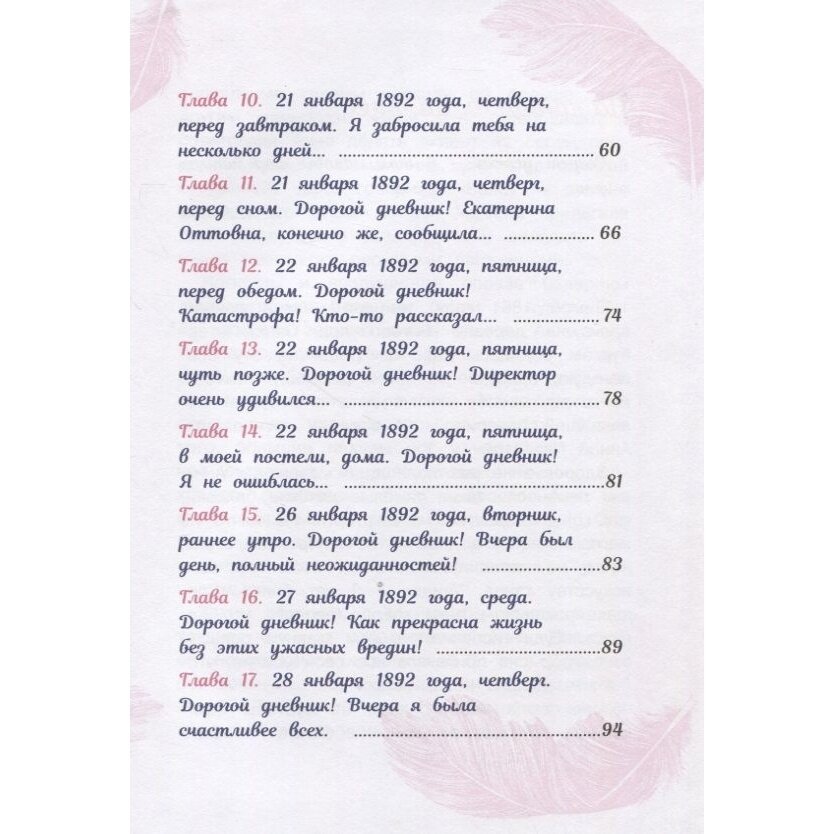 Глава 10. 21 января 1892 года, четверг,
перед завтраком. Я забросила тебя на
несколько дней... 60
Глава 11. 21 января 1892 года, четверг,
перед сном. Дорогой дневник! Екатерина
Оттовна, конечно же, сообщила... 66
Глава 12. 22 января 1892 года, пятница,
перед обедом. Дорогой дневник!
Катастрофа! Кто-то рассказал... 74
Глава 13. 22 января 1892 года, пятница,
чуть позже. Дорогой дневник! Директор
очень удивился... 78
Глава 14. 22 января 1892 года, пятница,
в моей постели, дома. Дорогой дневник!
Я не ошиблась... 81
Глава 15. 26 января 1892 года, вторник,
раннее утро. Дорогой дневник! Вчера был
день, полный неожиданностей! 83
Глава 16. 27 января 1892 года, среда.
Дорогой дневник! Как прекрасна жизнь
без этих ужасных вредин! 89
Глава 17. 28 января 1892 года, четверг.
Дорогой дневник! Вчера я была
счастливее всех. 94